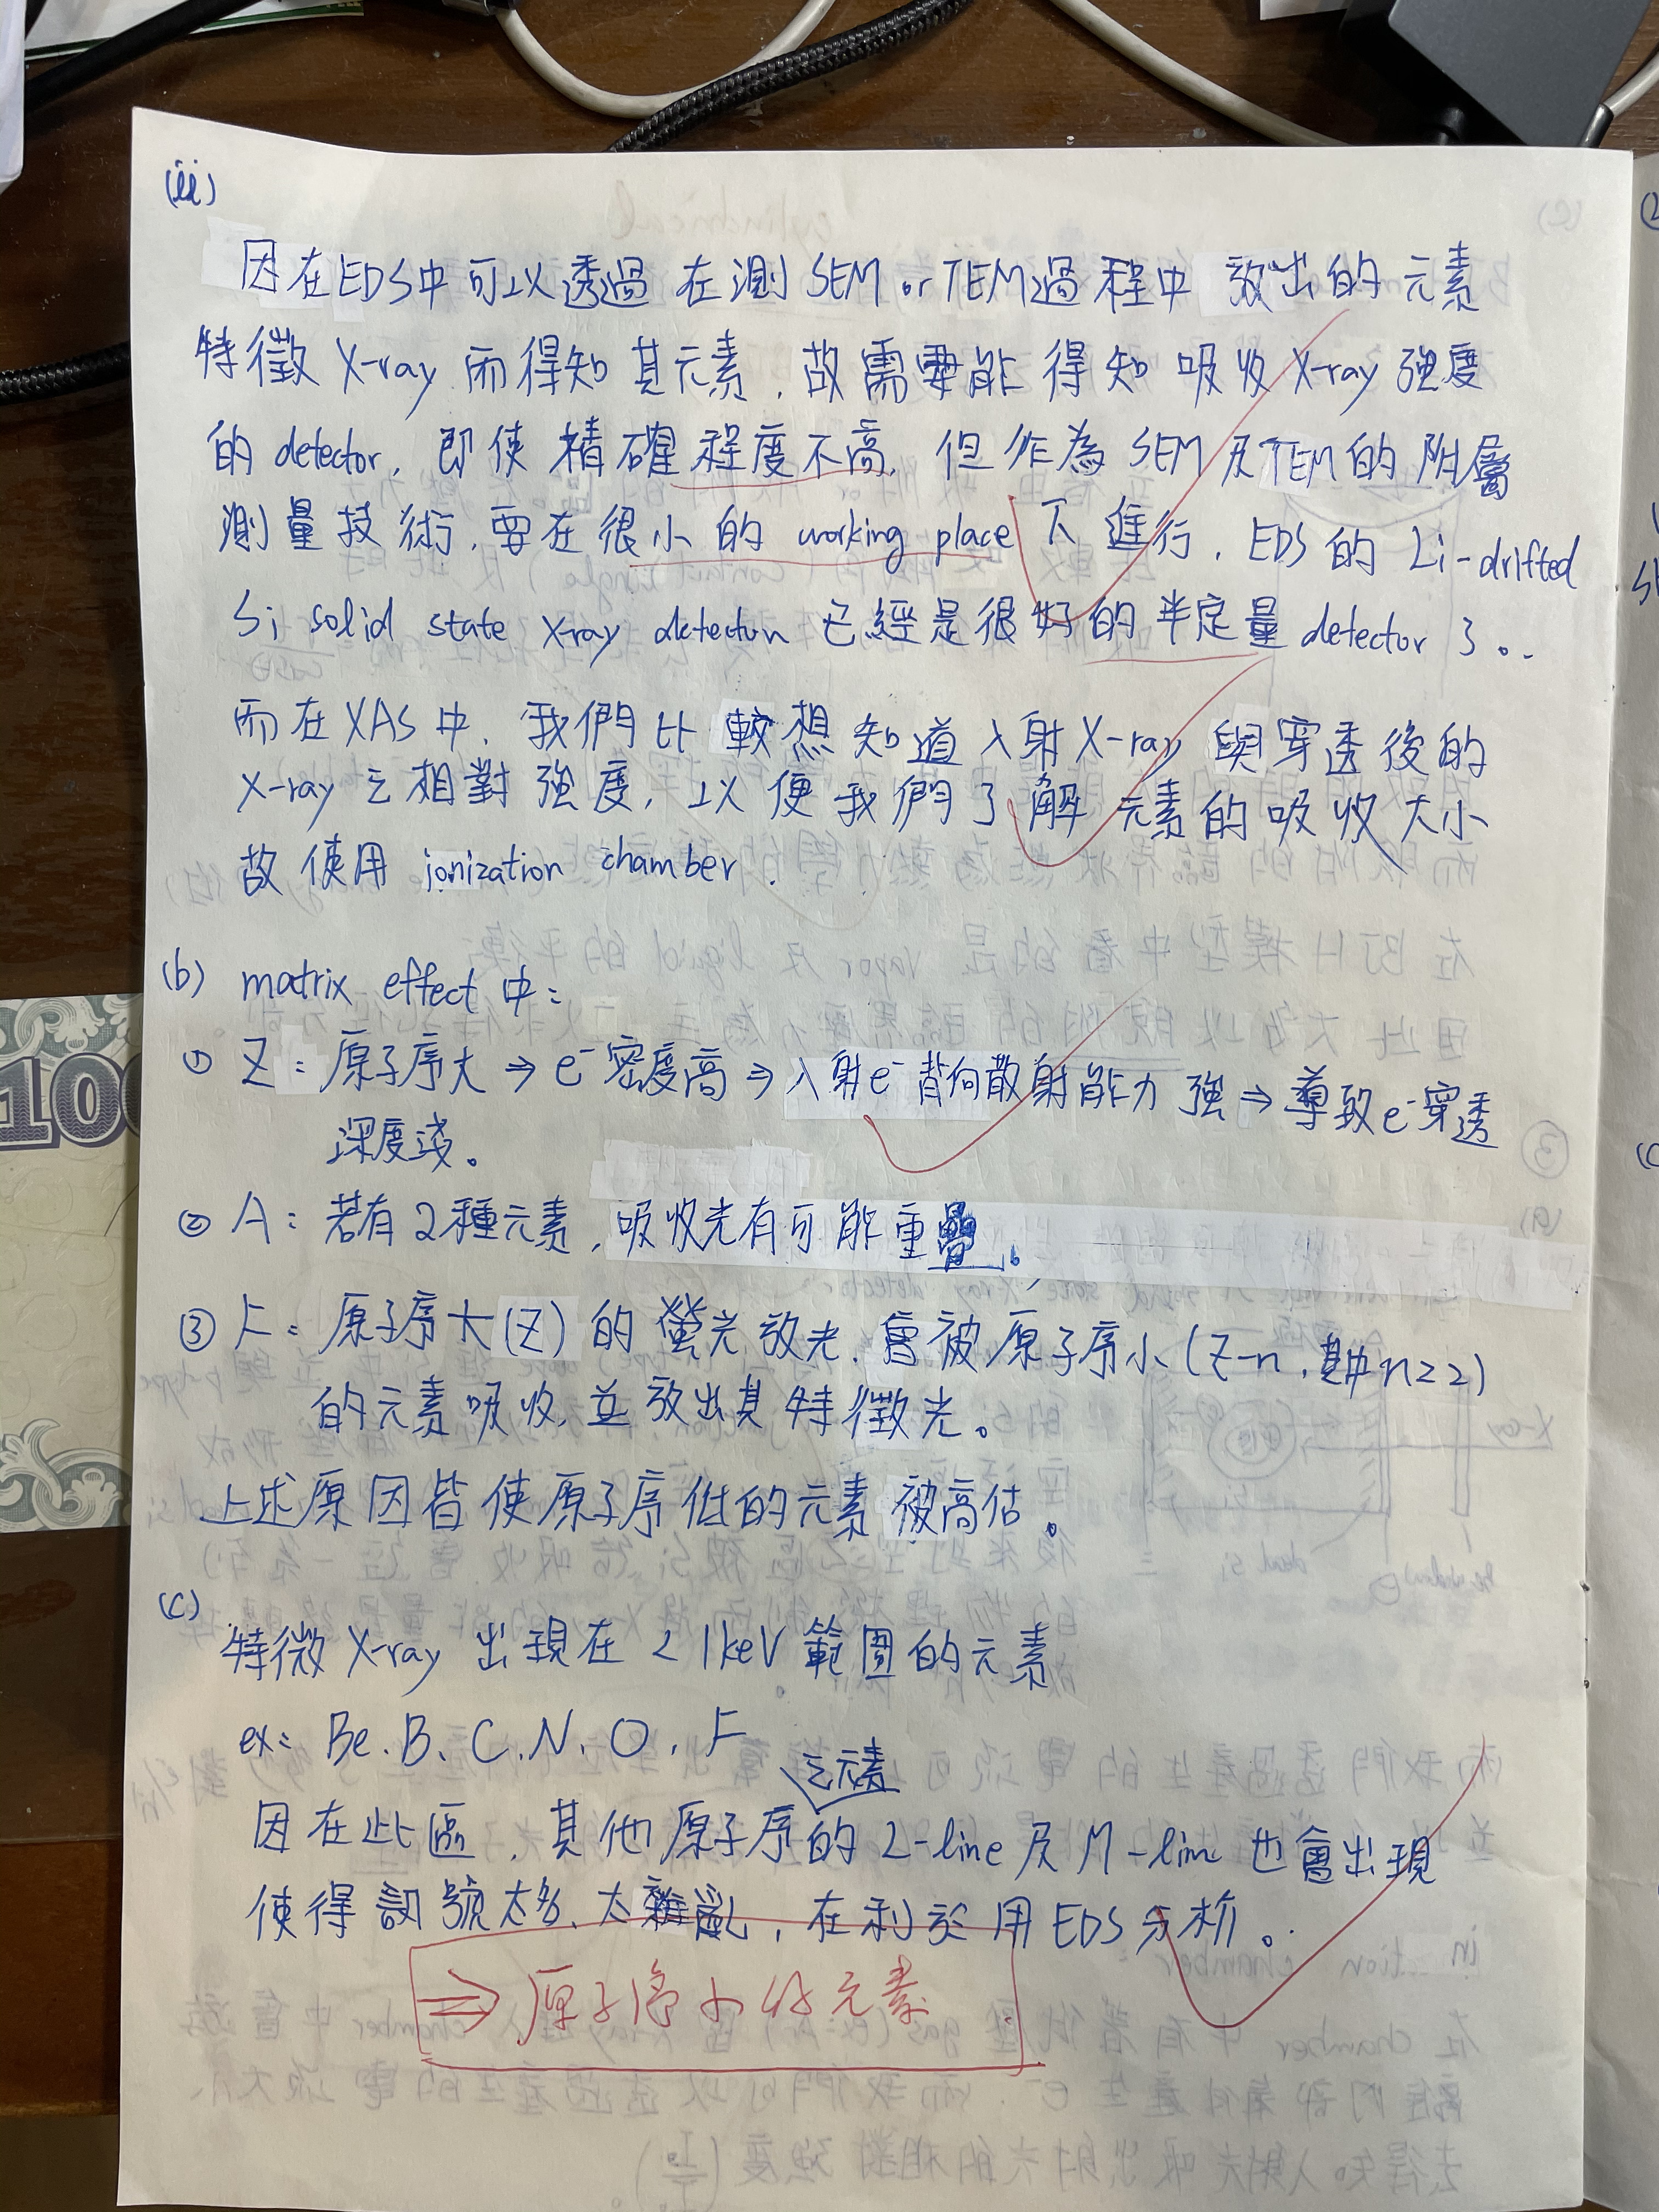 (ii)
因在EDS中可以透過 在測 SEM or TEM過程中 放出的 元素
特徵 X-ray 而得知 其元素，故需要能 得知 吸收 X-ray 強度
的 detector，即使 精確程度不高，但作為 SEM 及TEM的 附屬
測量技術，要在很小的 working place 下 進行，EDS 的 Li-drifted
Si solid state X-ray detector 已經是很好的 半定量 detector 了。
而在XAS 中，我們比較想知道入射X-ray 與穿透後的
X-ray 之相對強度，以便我們了解 元素的吸收大小
故使用 ionization chamber.
(b) matrix effect 中：
① Z：原子序大 ⇒ e⁻密度高 ⇒ 入射e⁻背向散射能力 強 ⇒ 導致e⁻穿透
深度淺。
② A：若有2種元素，吸收光有可能重疊。
③ F：原子序大(Z) 的 螢光放光，會被原子序小(Z-n，其中n≥2)
的元素吸收，並放出其特徵光。
上述原因皆使原子序低的元素 被高估。
(c)
特徵 X-ray 出現在 < 1keV 範圍的元素
ex: Be、B、C、N、O、F
之元素
因在此區，其他原子序的 L-line 及 M-line 也會出現
使得訊號太多、太雜亂，在利於用EDS分析。
⇒ 原子序小的元素
100